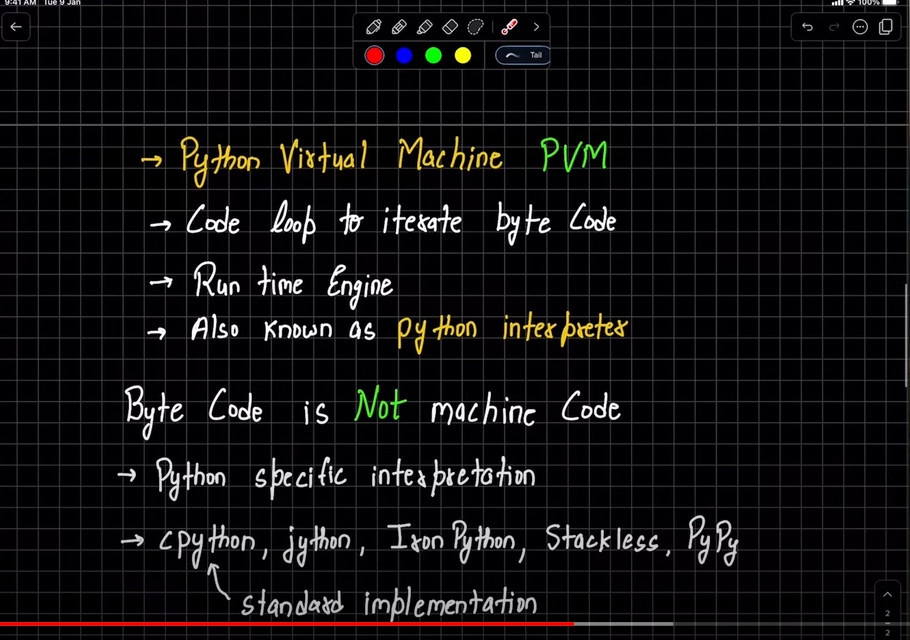 9:41 AM Tue 9 Jan
100%
Tail
→ Python Virtual Machine PVM
→ Code loop to iterate byte Code
→ Run time Engine
→ Also known as python interpreter
Byte Code is Not machine Code
→ Python specific interpretation
→ cpython, jython, Iron Python, Stackless, PyPy
standard implementation
2
2